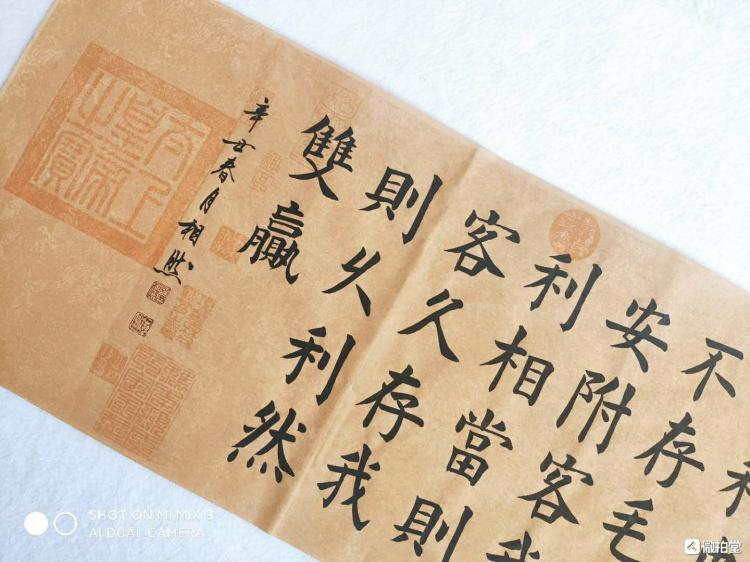 不存毛
安附客我
利相當則
客久存我
則久利然
雙贏
辛丑春月相然
SHOT ON MI MIX 3
AI DUAL CAMERA
微拍堂